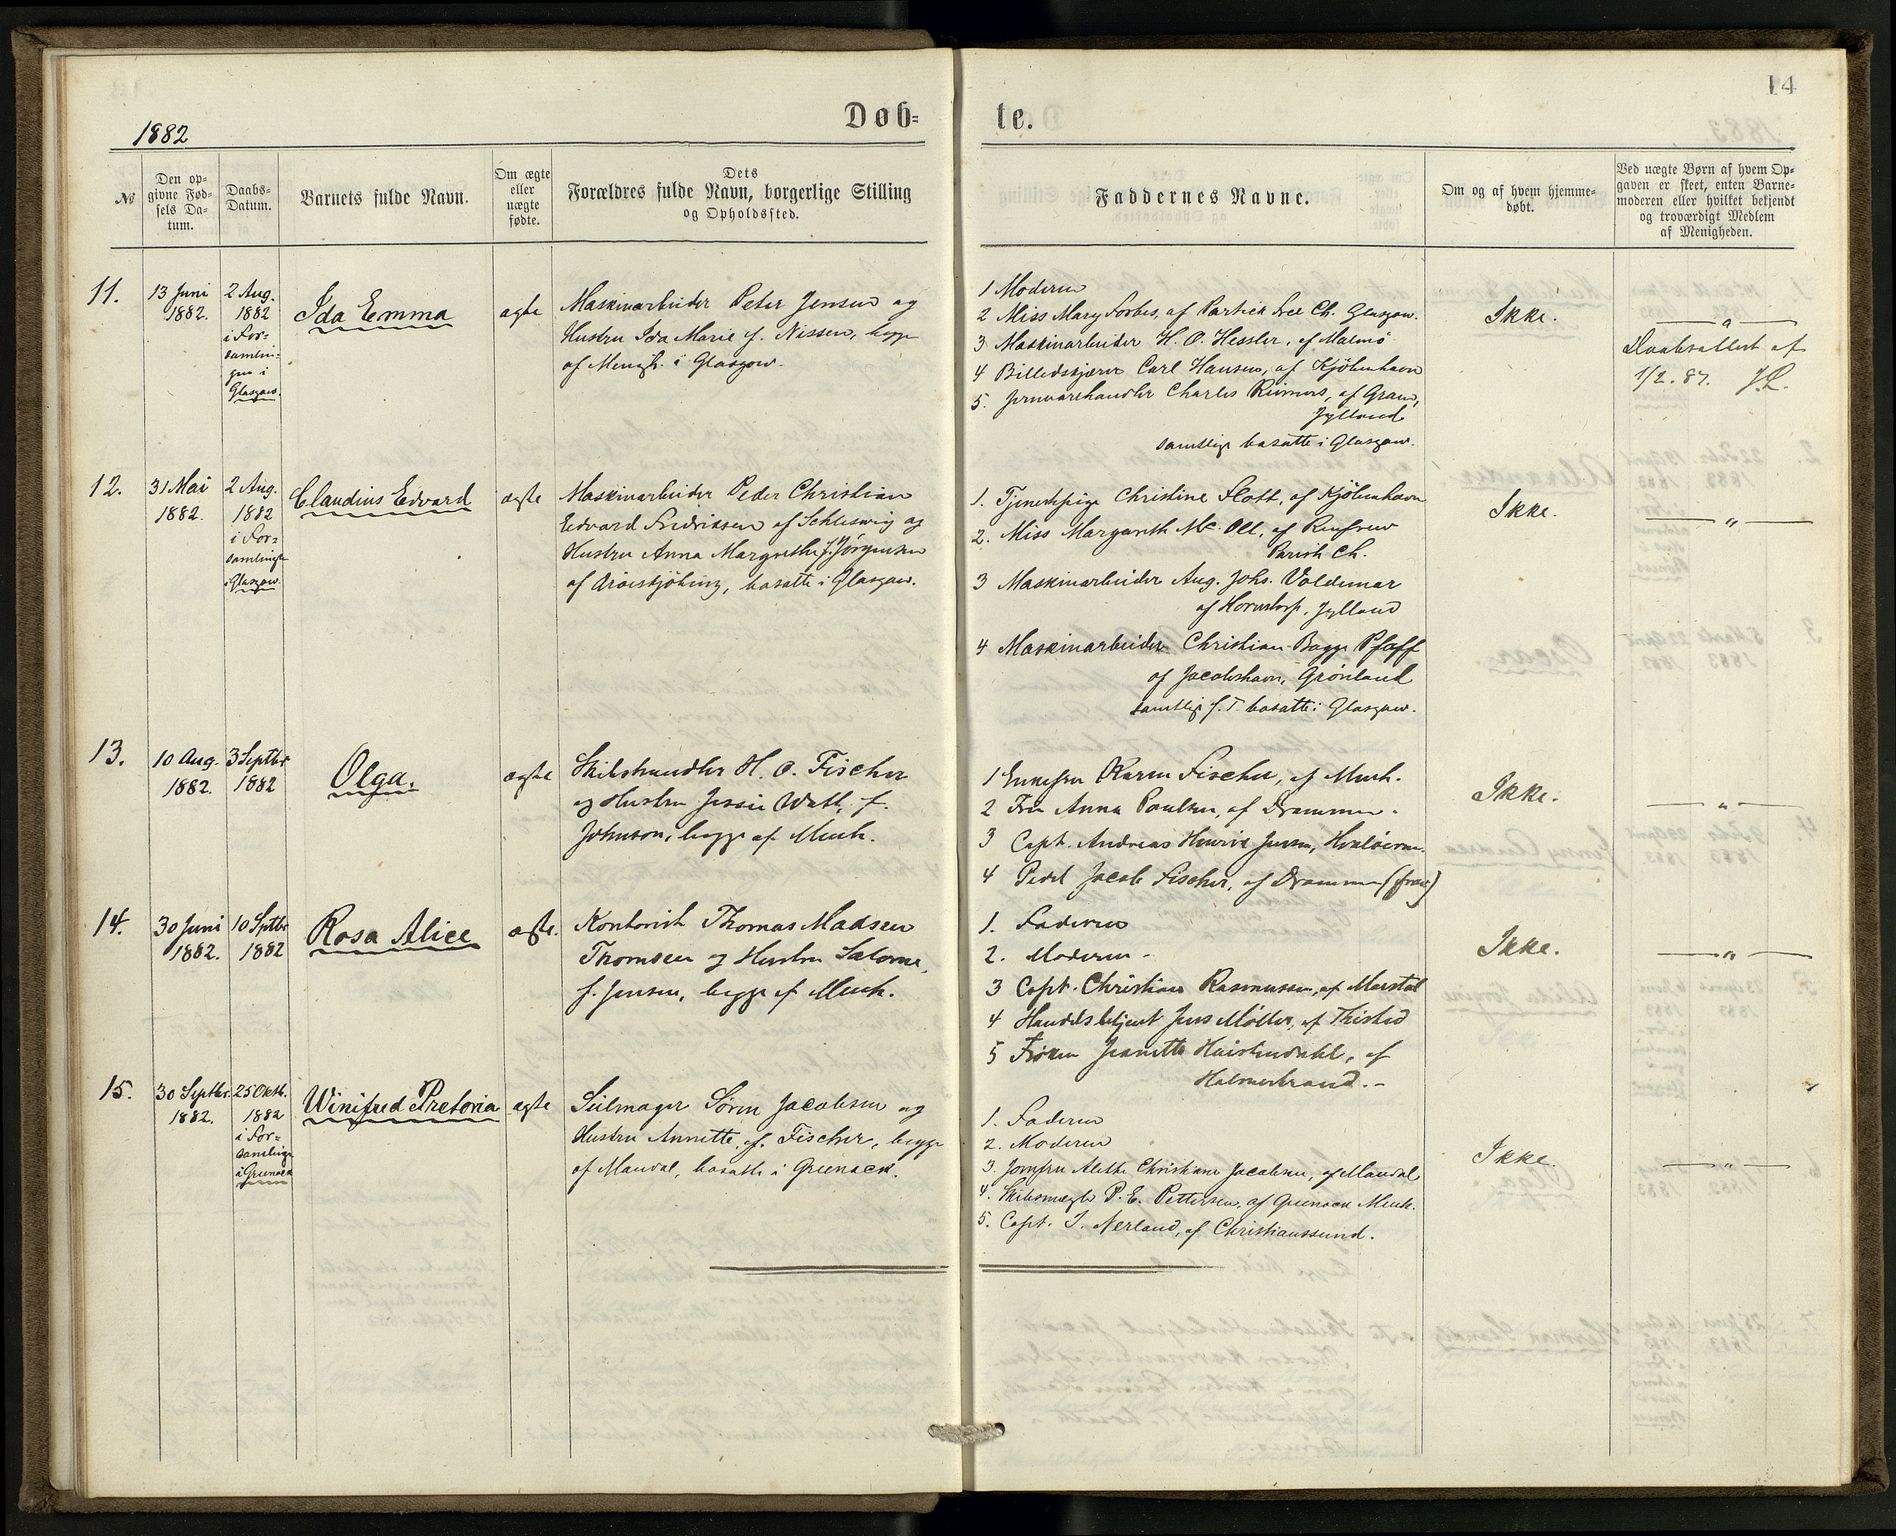 14
1882
Døb-
te.
№
Den op-
givne Fød-
sels Da-
tum.
Daabs-
Datum.
Barnets fulde Navn.
Om ægte
eller
uægte
fødte.
Dets
Forældres fulde Navn, borgerlige Stilling
og Opholdssted.
Faddernes Navne.
Om og af hvem hjemme-
døbt.
Ved uægte Børn af hvem Op-
gaven er skeet, enten Barne-
moderen eller hvilket bekjendt
og troværdigt Medlem
af Menigheden.
11.
13 Juni
1882.
2 Aug.
1882
i For-
samlin-
gen i
Glasgow.
Ida Emma
ægte
Maskinarbeider Peter Jensen og
Hustru Ida Marie f. Nissen, begge
af Menigh. i Glasgow.
1 Moderen
2 Miss Mary Forbes, af Partick Free Ch. Glasgow.
3 Maskinarbeider H. O. Hessler, af Malmö
4 Billedskjærer Carl Hansen, af Kjöbenhavn
5. Jernvarehandler Charles Reimers, af Gram,
Jylland
samtlige bosatte i Glasgow.
Ikke.
Daabsattest af
1/2. 87.
12.
31 Mai
1882.
2 Aug.
1882
i For-
samlinge
i Glasgow.
Claudius Edvard
ægte
Maskinarbeider Peder Christian
Edvard Fredriksen af Schleswig og
Hustru Anna Margrethe f. Jørgensen
af Æröeskjöbing, bosatte i Glasgow.
1. Tjenestepige Christine Slott, af Kjöbenhavn
2. Miss Margareth Mc. Oll, af Renfrew
Parish Ch.
3 Maskinarbeider Aug. Johs. Voldemar
af Hornstorp, Jylland
4 Maskinarbeider Christian Bagge Pfaff
af Jacobshavn, Grönland
samtlige f. T. bosatte i Glasgow.
Ikke.
— " —
13.
10 Aug.
1882.
3 Septbr
1882
Olga.
ægte
Skibshandler H. O. Fischer
og Hustru Jessie Watt, f.
Johnson, begge af Menh.
1 Enkefru Karen Fischer, af Menh.
2 Fru Anna Poulsen, af Drammen.
3 Capt. Andreas Henrik Jensen, Hvaløerne.
4 Peder Jacob Fischer, af Drammen (frav.)
Ikke.
— " —
14.
30 Juni
1882.
10 Septbr
1882
Rosa Alice
ægte.
Kontorist Thomas Madsen
Thomsen og Hustru Salome,
f. Jensen, begge af Menh.
1. Faderen
2. Moderen
3 Capt. Christian Rasmussen, af Marstal
4 Handelsbetjent Jens Möller, af Thisted
5 Frøken Jeanette Hvistendahl, af
Holmestrand.
Ikke.
— " —
15.
30 Septbr.
1882.
25 Oktb.
1882
i For-
samlinge
i Greenock
Winifred Pretoria
ægte
Seilmager Sören Jacobsen og
Hustru Annette, f. Fischer, begge
af Mandal, bosatte i Greenock.
1. Faderen
2. Moderen
3. Jomfru Alethe Christiane Jacobsen, af Mandal
4. Skibsmægler P. E. Pettersen, af Greenock Menh.
5. Capt. T. Nerland, af Christianssund.
Ikke.
— " —